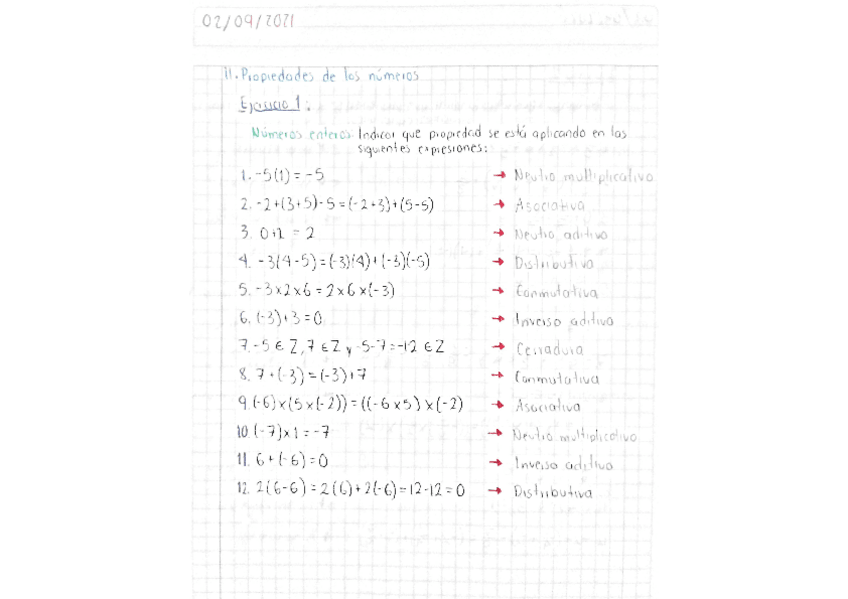 02/09/2021
11. Propiedades de los números
Ejercicio 1:
Números enteros: Indicar que propiedad se está aplicando en las
siguientes expresiones:
1. -5(1) = -5 → Neutro multiplicativo
2. -2+(3+5)-5=(-2+3)+(5-5) → Asociativa
3. 0+2 = 2 → Neutro aditivo
4. -3(4-5)=(-3)(4)+(-3)(-5) → Distributiva
5. -3x2x6=2x6x(-3) → Conmutativa
6. (-3)+3=0 → Inverso aditivo
7. -5 ∈ Z, 7 ∈ Z y -5-7=-12 ∈ Z → Cerradura
8. 7+(-3)=(-3)+7 → Conmutativa
9. (-6)x(5x(-2))=((-6x5)x(-2) → Asociativa
10. (-7)x1=-7 → Neutro multiplicativo
11. 6+(-6)=0 → Inverso aditivo
12. 2(6-6)=2(6)+2(-6)=12-12=0 → Distributiva